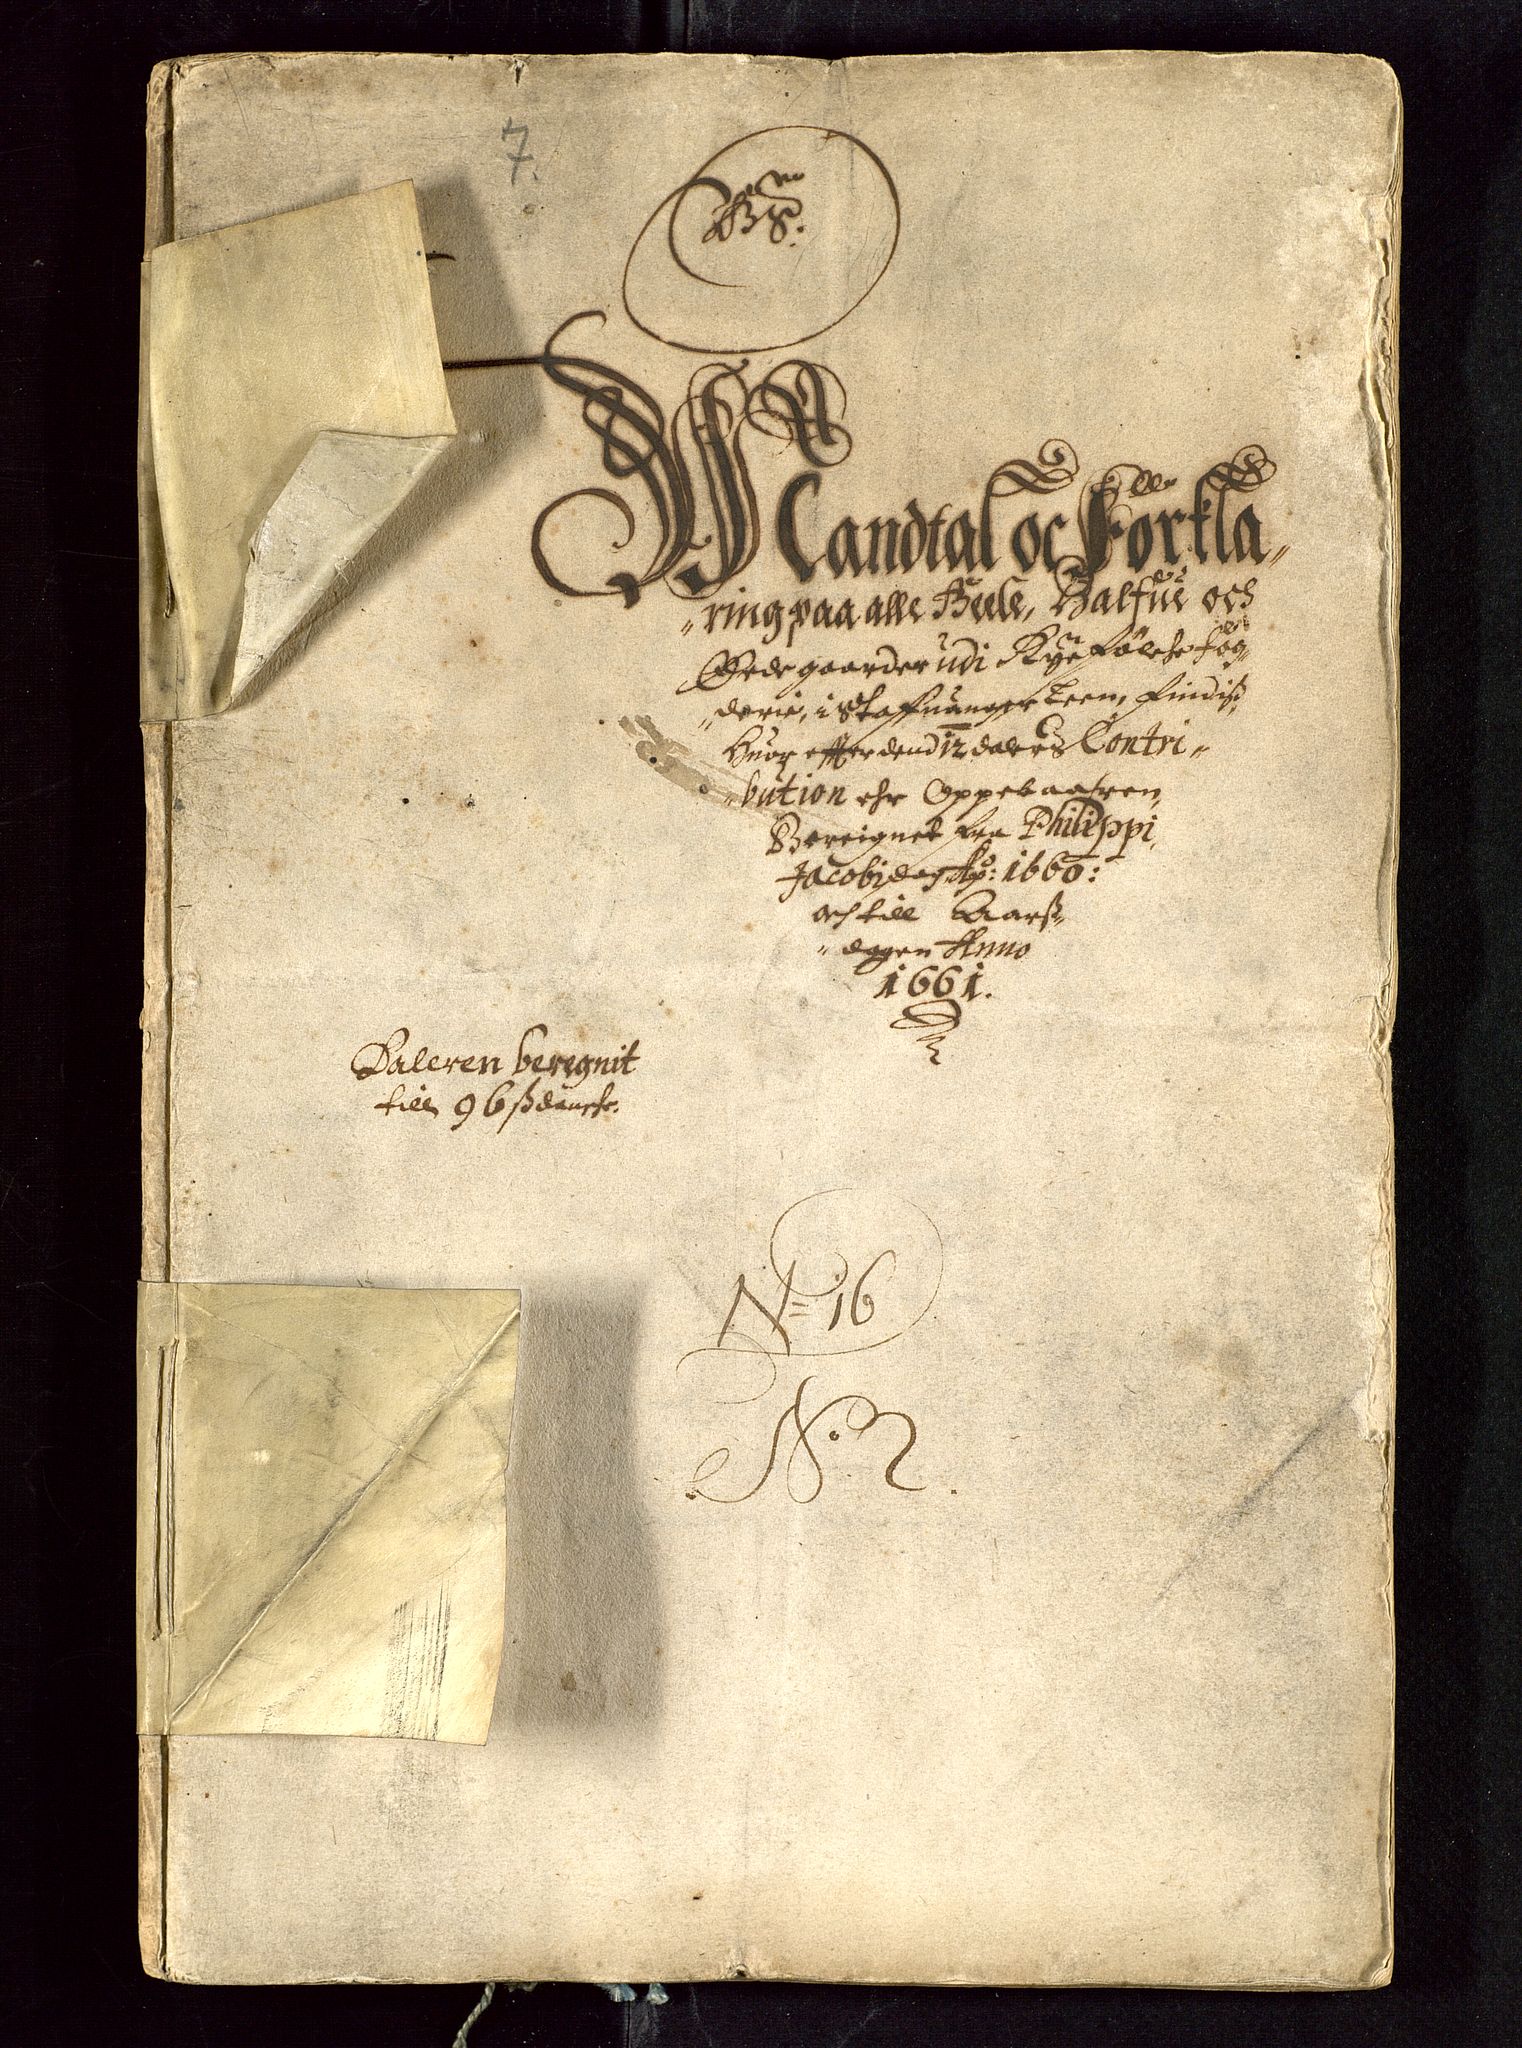 7.
Mandtal oc Forkla-
ring paa alle Heele, Halfue och
Ødegaarder udi Ryefølche fog-
derie, i Staffuanger Leen, findiß,
Huor effter dend 12 dalers Contri-
bution ehr Oppebaaren,
Bereignet fra Philippi
Jacobj dag Ao: 1660:
och till Aarß-
dagen Anno
1661.
Daleren beregnit
till 96 ß danche.
No 16
No. 2.